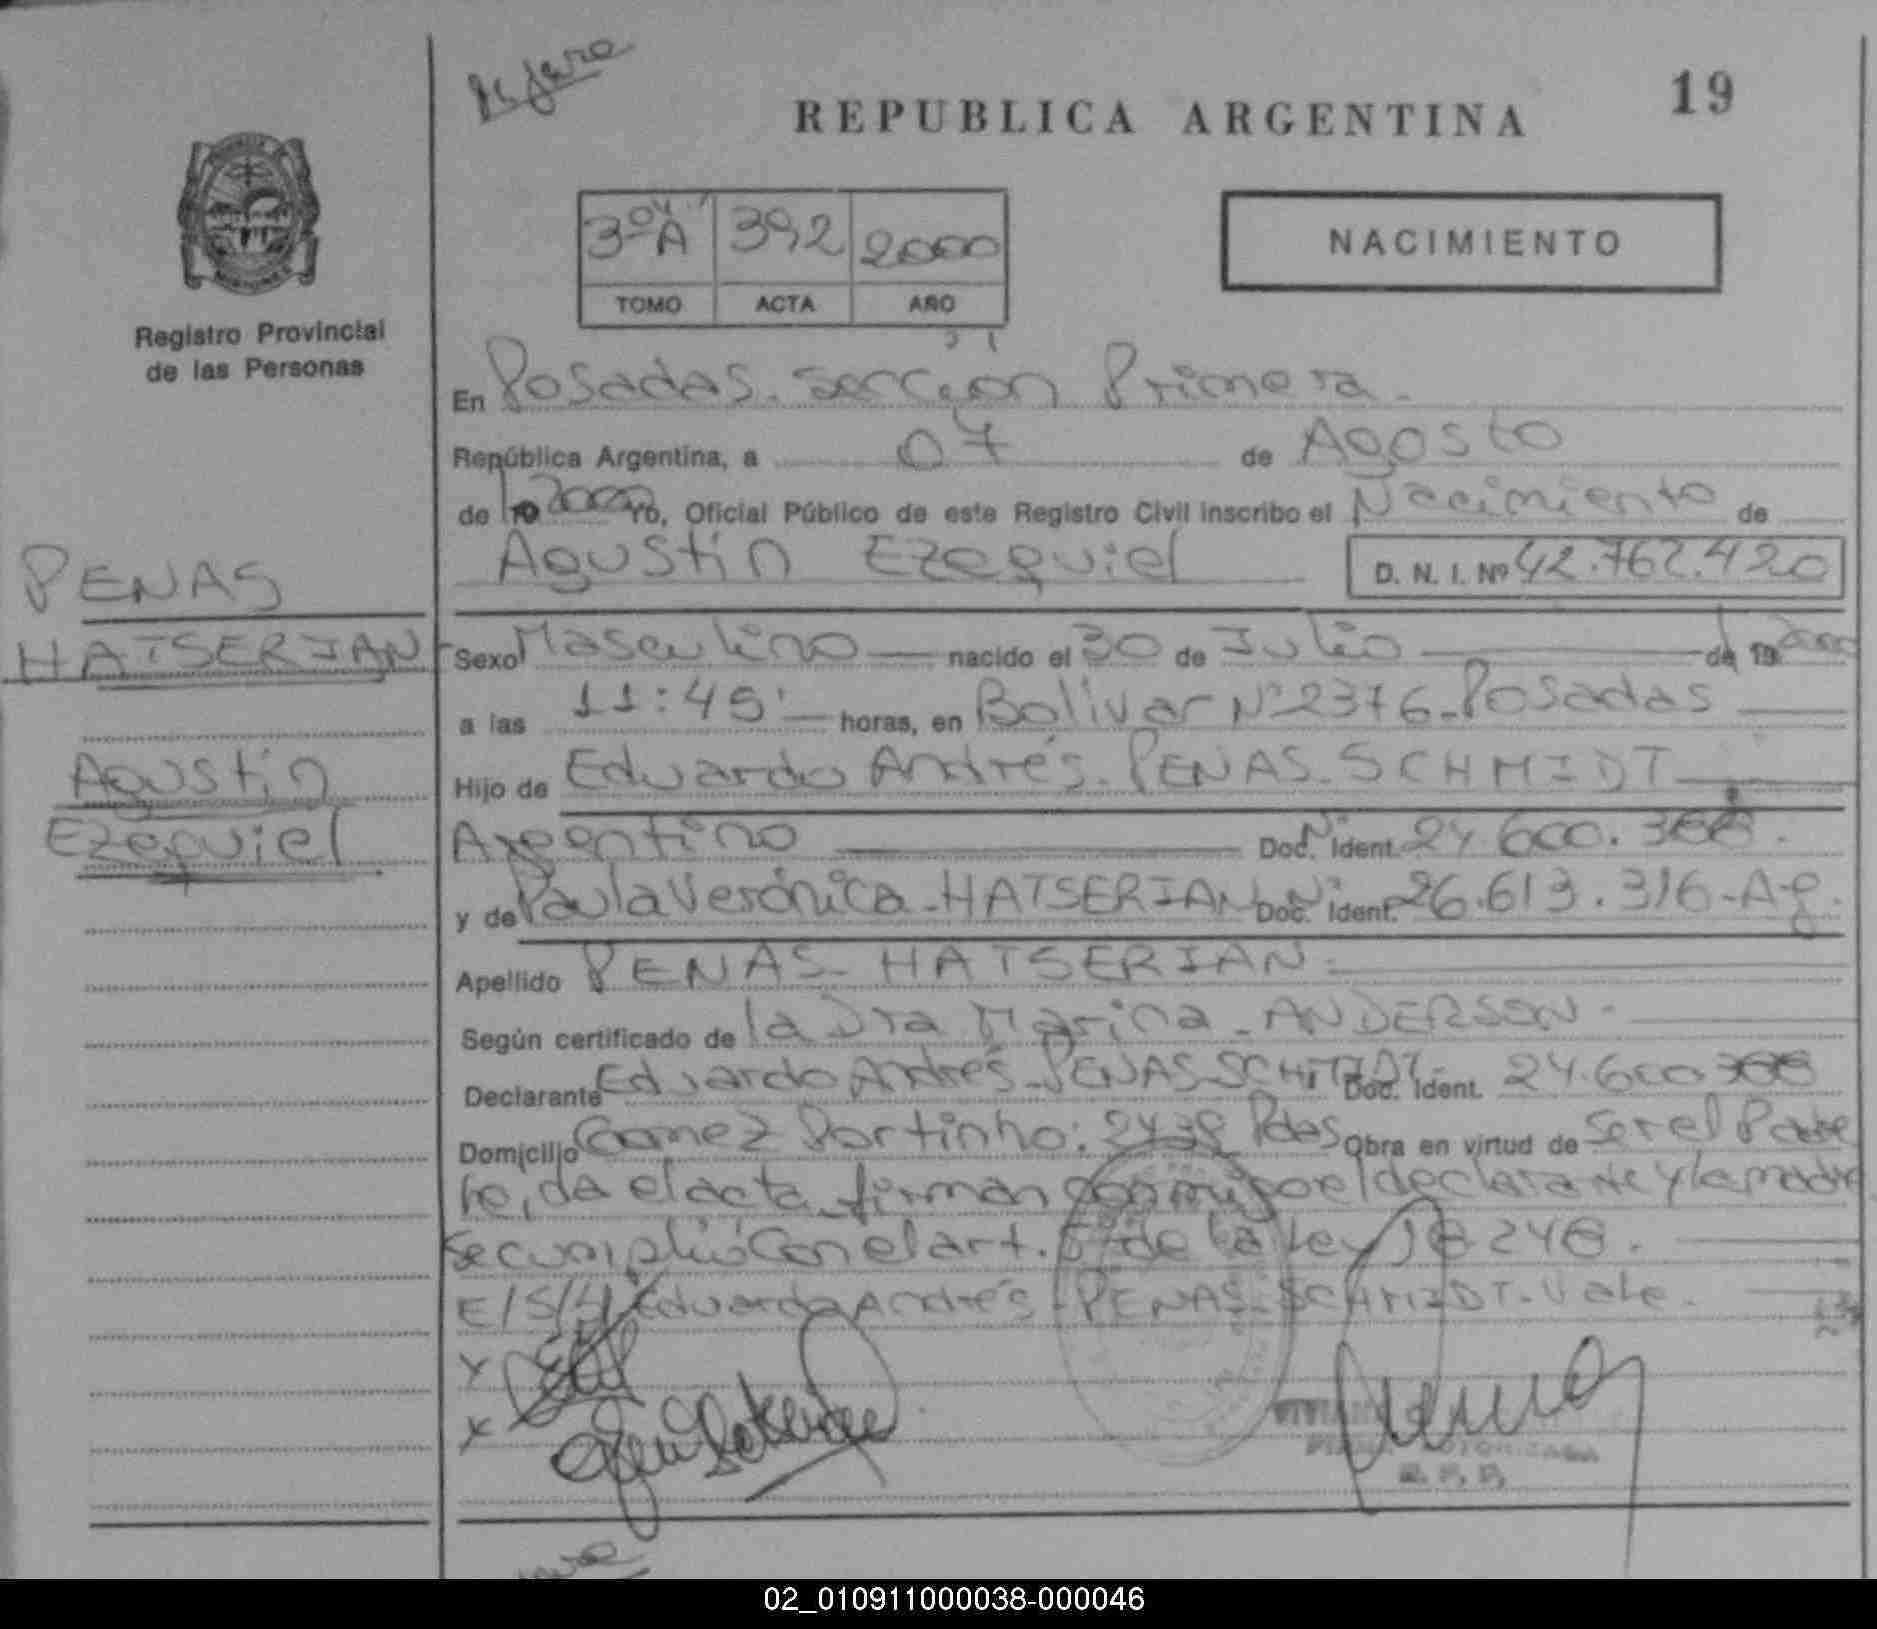 REPUBLICA ARGENTINA
19
3º A 392 2000
TOMO ACTA AÑO
NACIMIENTO
Registro Provincial
de las Personas
En Posadas. sección Primera.
República Argentina, a 07 de Agosto
de 2000 Yo, Oficial Público de este Registro Civil inscribo el Nacimiento de
Agustin Ezequiel D. N. I. Nº 42.762.420
PENAS
HATSERIAN
Agustin
Ezequiel
Sexo Masculino nacido el 30 de Julio de 2000
a las 11:45' horas, en Bolivar Nº 2376-Posadas
Hijo de Eduardo Andrés. PENAS-SCHMIDT
Argentino Doc. Ident. 24.600.
y de Paula Verónica-HATSERIAN Doc. Ident. 26.613.316-Ag.
Apellido PENAS-HATSERIAN.
Según certificado de la Dra Marina-ANDERSON.
Declarante Eduardo Andrés-PENAS-SCHMIDT- Doc. Ident. 24.600
Domicilio Gomez Portinho: Pdas Obra en virtud de Ser el Padre
leida el acta firman el declarante y la madre
se cumplió con el art. de la Ley 18.248.
E/S/4 Eduardo Andrés-PENAS-SCHMIDT-Vale.
R. P. P.
02_010911000038-000046